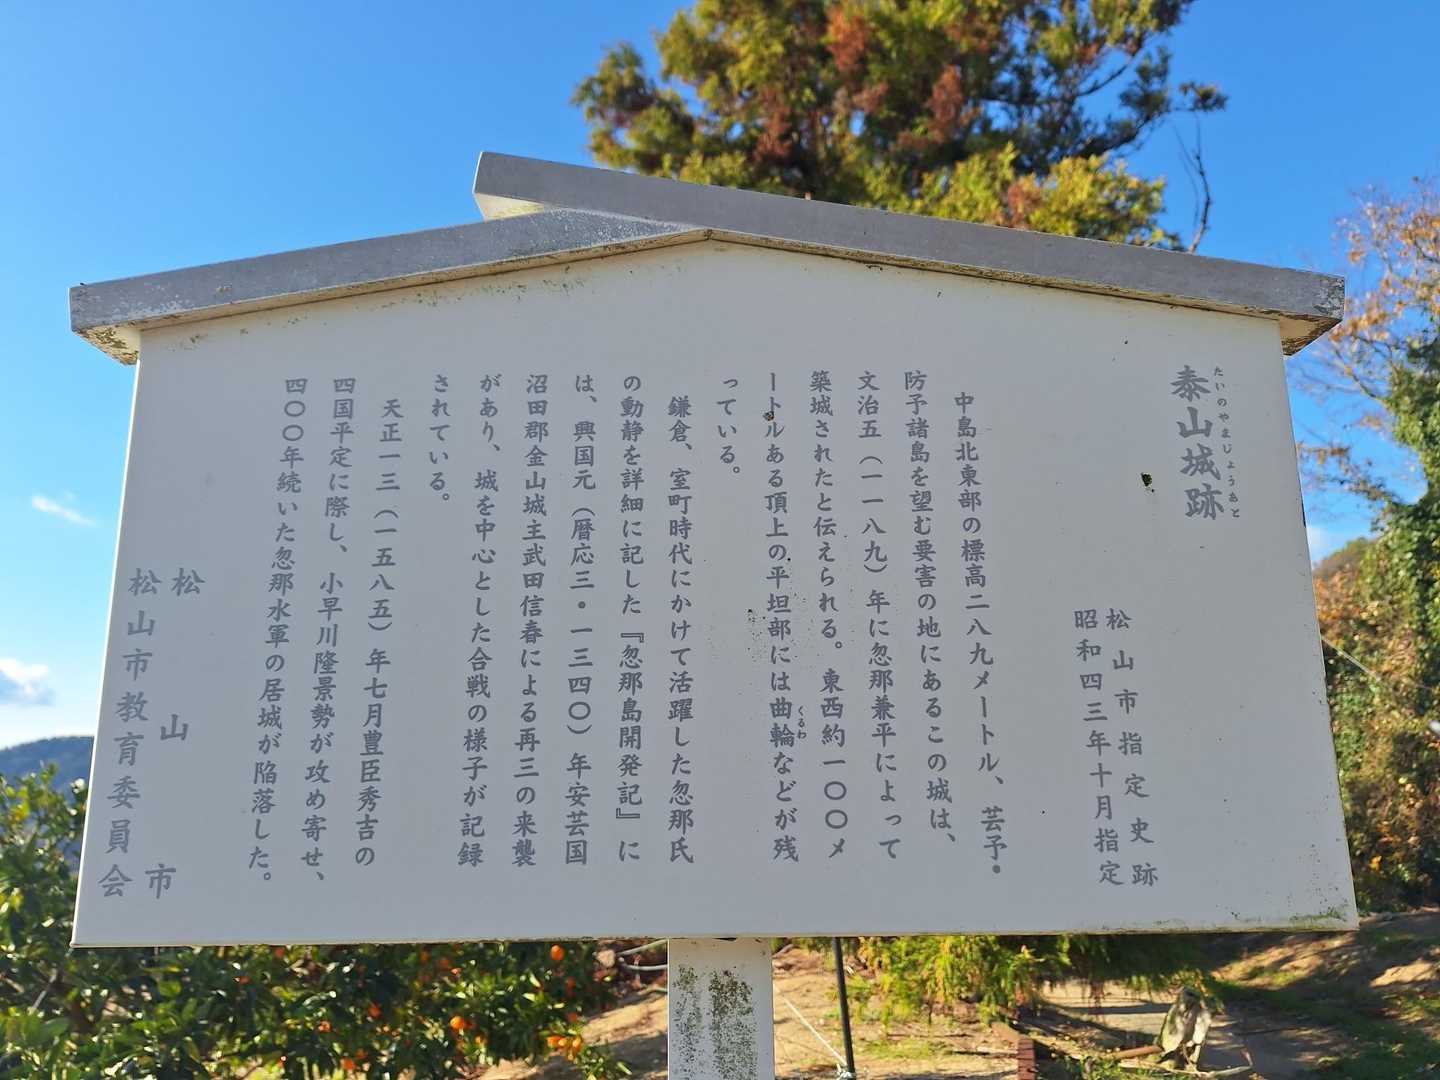 泰山城跡
たいのやまじょうあと
松山市指定史跡
昭和四三年十月指定
中島北東部の標高二八九メートル、芸予・
防予諸島を望む要害の地にあるこの城は、
文治五（一一八九）年に忽那兼平によって
築城されたと伝えられる。東西約一〇〇メ
ートルある頂上の平坦部には曲輪などが残
くるわ
っている。
鎌倉、室町時代にかけて活躍した忽那氏
の動静を詳細に記した『忽那島開発記』に
は、興国元（暦応三・一三四〇）年安芸国
沼田郡金山城主武田信春による再三の来襲
があり、城を中心とした合戦の様子が記録
されている。
天正一三（一五八五）年七月豊臣秀吉の
四国平定に際し、小早川隆景勢が攻め寄せ、
四〇〇年続いた忽那水軍の居城が陥落した。
松山市
松山市教育委員会